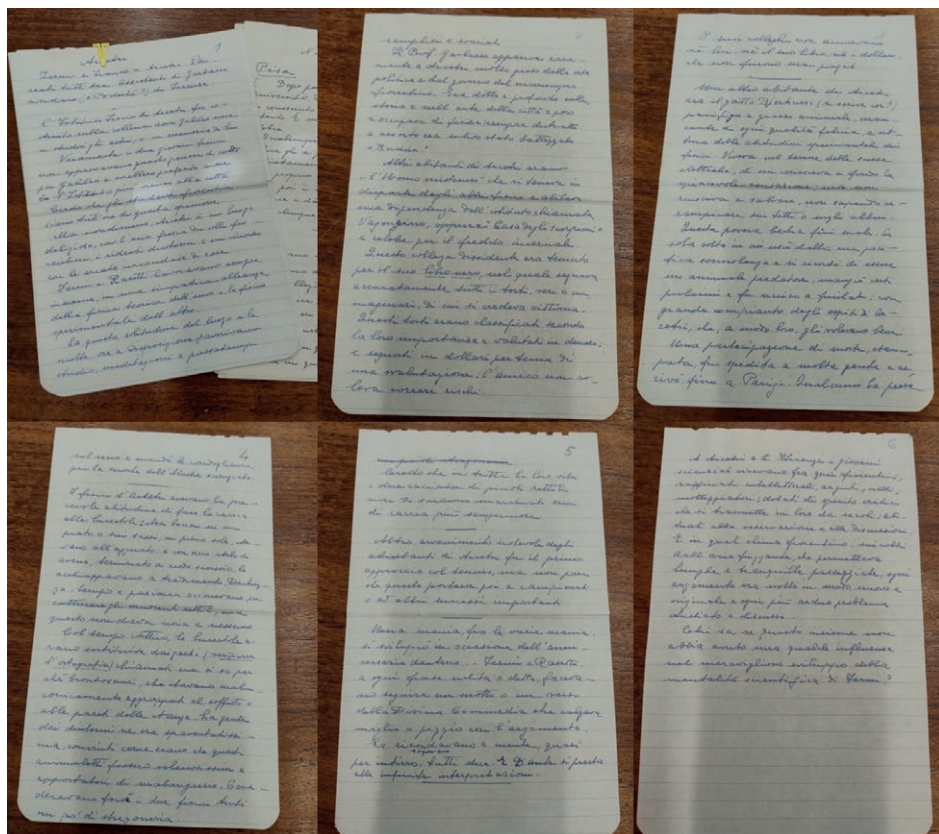 1
Arcetri
Fermi e Franco a Arcetri. Chia-
mati tutti due Assistenti da Garbasso
senatore (e Podestà?) di Firenze
L'Istituto Fisico di Arcetri fu co-
struito sulla collina dove Galileo visse
in studio gli astri, e in memoria di lui
Veramente i due giovani fisici
non approvavano questo genere di culto
per Galileo e avrebbero preferito avere
l'Istituto più vicino alla città
Credo che gli studenti fiorentini
fossero tutti di questo parere
Ma nondimeno Arcetri è un luogo
delizioso, con l'aria fresca di alta
collina, i ridenti dintorni e un
con le aiuole incorniciate di rose
Fermi e Rasetti lavoravano sempre
insieme, in una simpatica alleanza
della fisica teorica dell'uno e la fisica
sperimentale dell'altro
La quieta solitudine del luogo e le
molte ore a disposizione favorivano
studio meditazioni e passatempi
Pisa
Dopo
semplici e svariati
Il Prof. Garbasso appariva rara-
mente a Arcetri, molto preso dalla vita
politica e dal governo del municipio
fiorentino. Era dotto e profondo nella
storia e nell'arte della città e poco
s'occupava di fisica; sempre distratto
e assorto era stato battezzato
"il Budda"
Altri abitanti di Arcetri erano
"l'Uomo misterioso" che si teneva in
disparte dagli altri fisici e abitava
una dipendenza dell'istituto chiamata
Vagoncino, oppure la Casa degli scorpioni
e celebre per il freddo invernale.
Questo collega dissidente era temuto
per il suo libro nero, nel quale segnava
accuratamente tutti i torti, veri o im-
maginari, di cui si credeva vittima.
Questi torti erano classificati secondo
la loro importanza e valutati in denaro
e segnati in dollari per tema di
una svalutazione: l'amico non vo-
leva correre rischi.
I suoi colleghi non amavano
nè lui, nè il suo libro, nè i dollari
che non furono mai pagati
Un altro abitante di Arcetri
era il gatto
pacifico e grosso animale, man-
cante di ogni qualità felina, e vit-
tima delle abitudini sperimentali dei
fisici. Viveva nel terrore delle scosse
elettriche, di cui conosceva a fondo la
spiacevole sensazione; ma non
riusciva a salvarsi, non sapendo ar-
rampicarsi sui tetti o sugli alberi.
Questa povera bestia finì male. La
sola volta in cui uscì dalla sua paci-
fica sonnolenza e si ricordò di essere
un animale predatore, mangiò vari
pulcini e fu ucciso a fucilate: con
grande compianto degli ospiti di Ar-
cetri, che, a modo loro, gli volevano bene
Una partecipazione di morte, stam-
pata, fu spedita a molta gente e ar-
rivò fino a Parigi. Qualcuno la prese
4
sul serio e mandò le condoglianze
per la morte dell'illustre
I fisici d'Arcetri avevano la pia-
cevole abitudine di fare la caccia
alle lucertole: stesi bocconi su un
prato o sui sassi, in pieno sole, sta-
vano all'agguato e con uno stelo di
avena, terminato a nodo scorsoio, le
acchiappavano a tradimento. Destrez-
za, tempo e pazienza occorrevano per
catturare gli innocenti rettili, ma
questo non dava noia a nessuno
Col tempo cattivo le lucertole e-
rano sostituite dai gechi
l'ortografia) chiamati non si sa per-
chè Trontosauri, che stavano malin-
conicamente aggrappati al soffitto o
alle pareti delle stanze. La gente
dei dintorni ne era spaventatissi-
ma, convinti come erano che questi
animaletti fossero velenosissimi e
apportatori di malaugurio. Consi-
deravano forse i due fisici tinti
un po' di stregoneria.
5
un po' di stregoneria
Credo che in tutta la loro vita
i due cacciatori di piccoli rettili
non si saranno macchiati mai
di caccia più sanguinosa
Altro avvenimento notevole degli
abitanti di Arcetri fu il primo
approccio col tennis, ma non pare
che questo portasse poi a campionati
o ad altri successi importanti
Una mania, fra le varie manie
si sviluppò in occasione dell'anni-
versario dantesco. Fermi e Rasetti
a ogni frase udita o detta, faceva-
no seguire un motto o un verso
della Divina Commedia che calzava
meglio o peggio con l'argomento.
La ricordavano a mente, quasi
per intiero, tutti due. E Dante si presta
alle infinite interpretazioni.
6
A Arcetri e a Firenze i giovani
scienziati vivevano fra quei fiorentini,
raffinati intellettuali, arguti, sottili
motteggiatori; dotati di spirito critico
che si tramette in loro da secoli; abi-
tuati alla osservazione e alla discussione.
E in quel clima fiorentino, sui colli
dall'aria frizzante, che permetteva
lunghe e tranquille passeggiate, ogni
argomento era svolto in modo nuovo e
originale e ogni più arduo problema
studiato e discusso.
Certo sa se questo insieme non
abbia avuto una qualche influenza
nel meraviglioso sviluppo della
mentalità scientifica di Fermi?